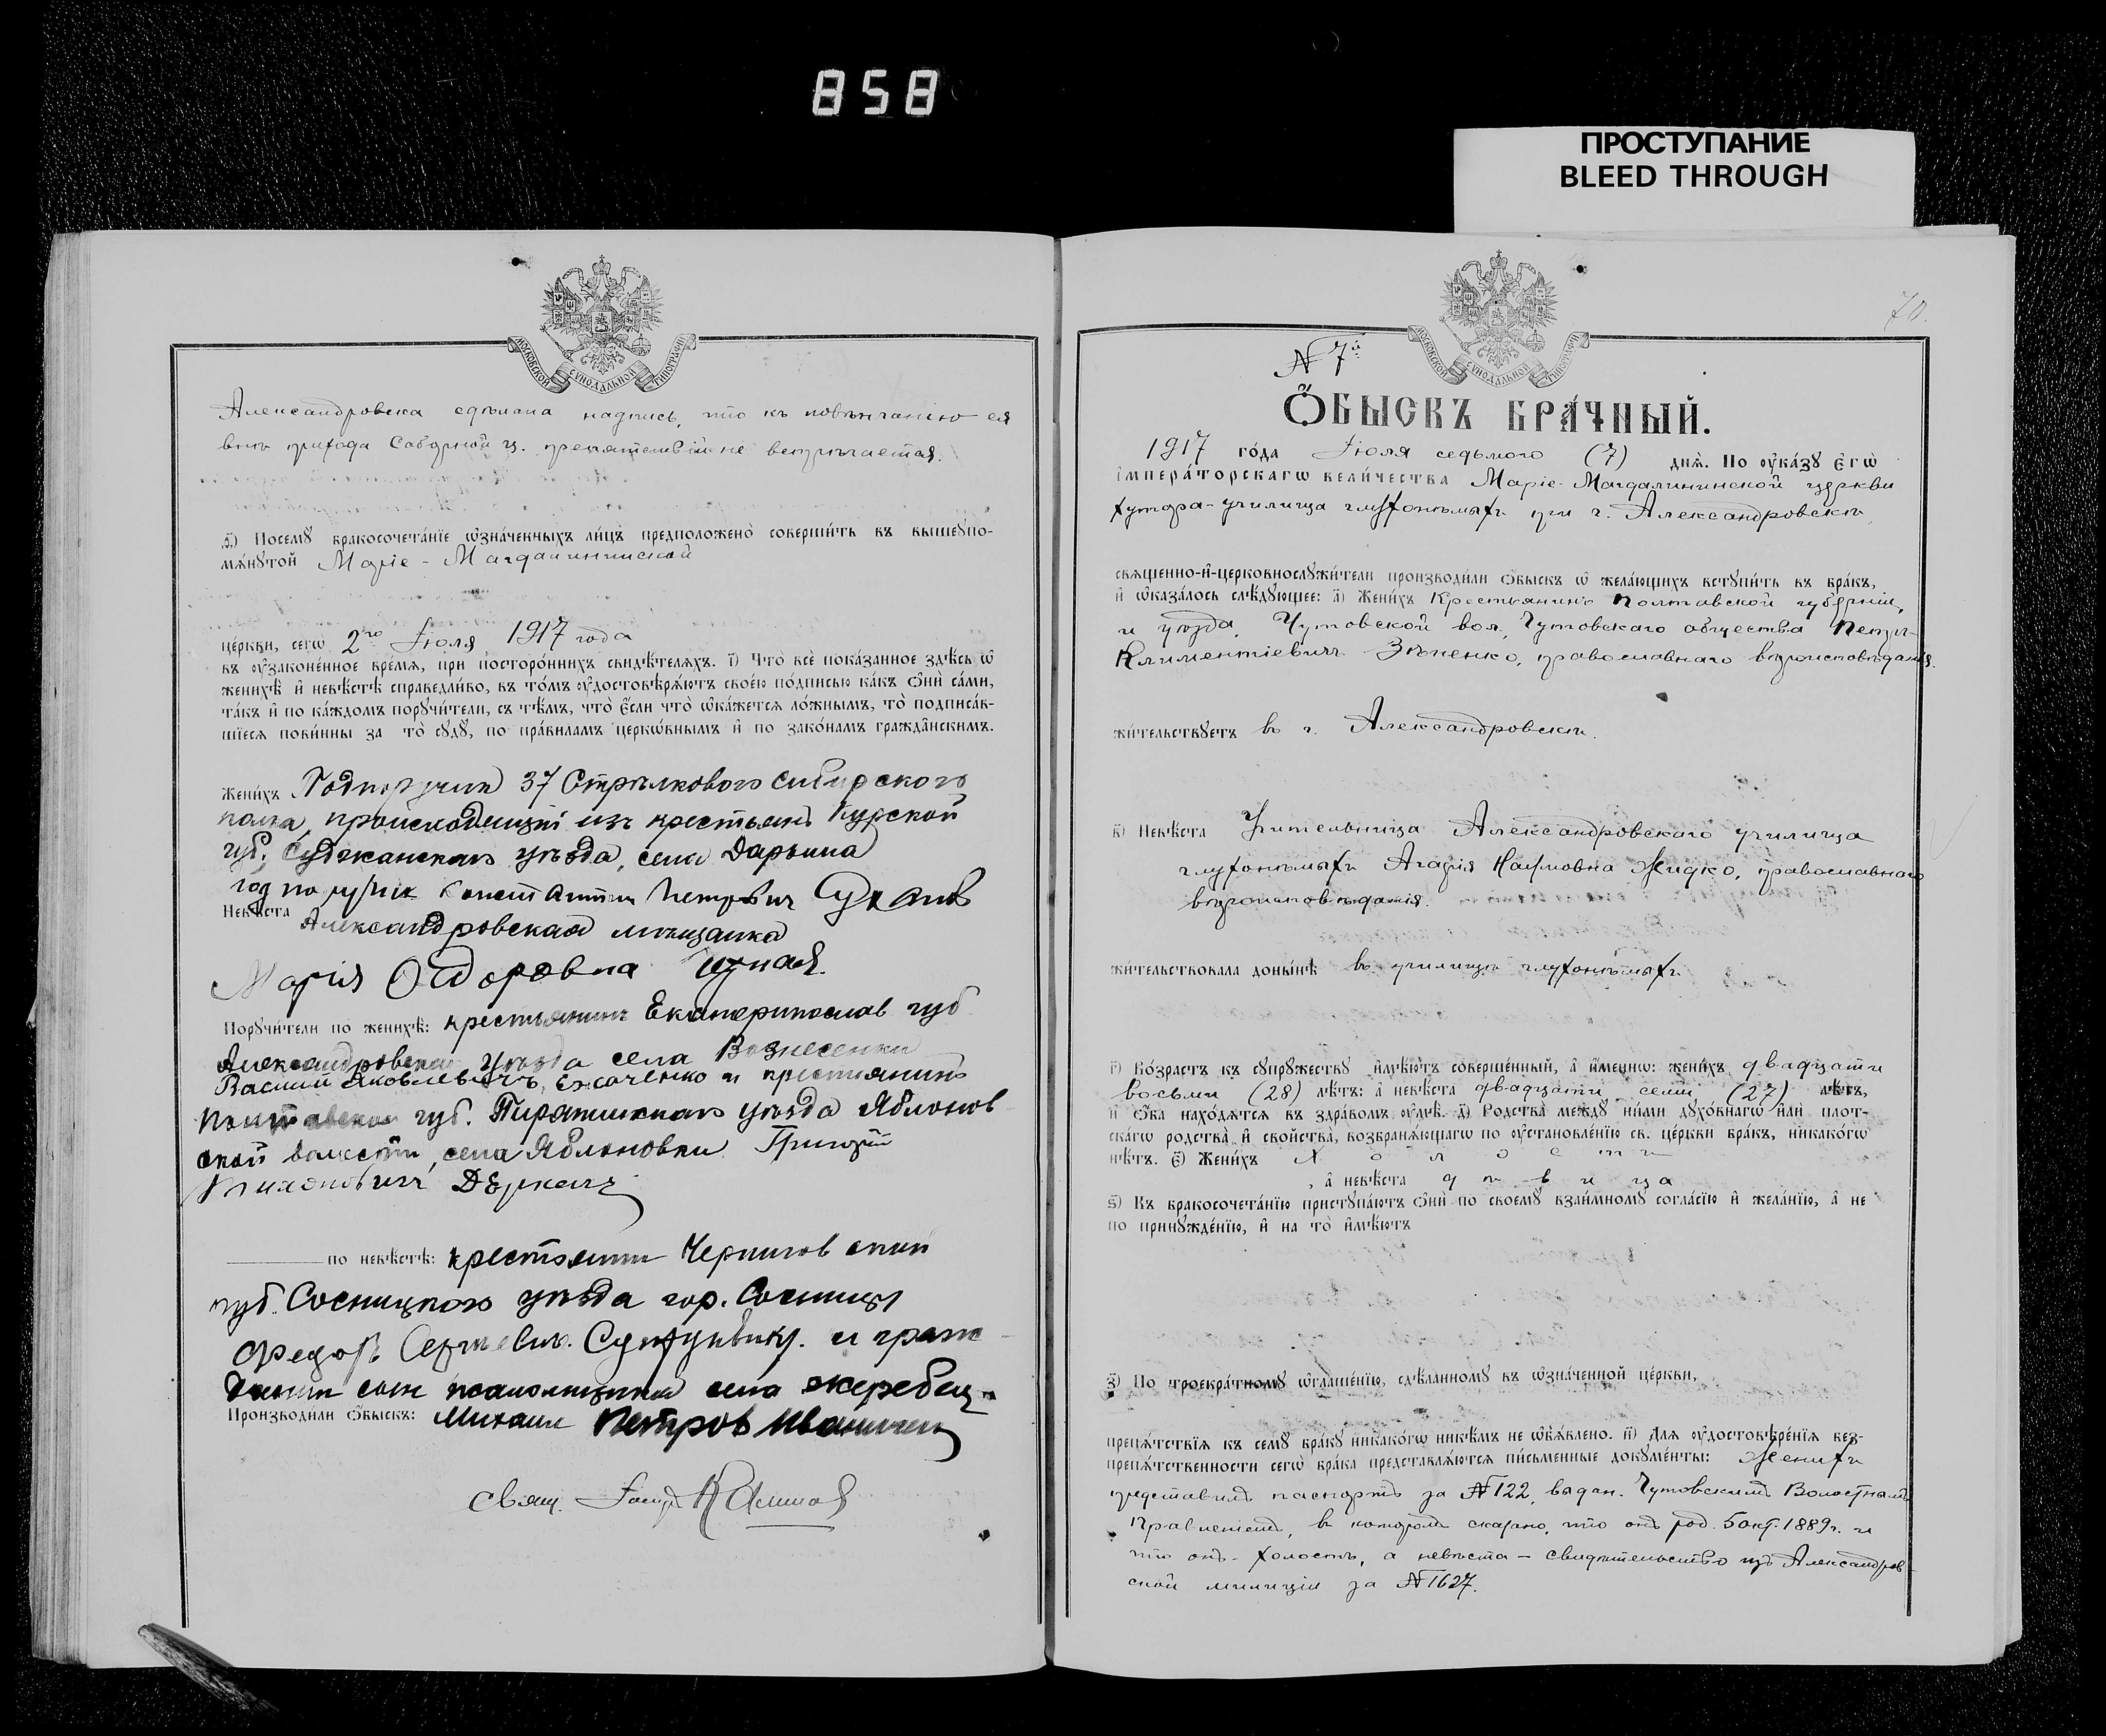 858
ПРОСТУПАНИЕ
BLEED THROUGH
МОСКОВСКОЙ СѴНОДАЛЬНОЙ ТИПОГРАФІИ
Александровска сдѣлана надпись, что къ повѣнчанію ея
внѣ прихода Соборной ц. препятствій не встрѣчается.
ѕ҃) Посемꙋ бракосочета́нїе ѡзна́ченныхъ ли́цъ предположено̀ соверши́ть въ вышеꙋпо-
мѧ́нꙋтой Маріе-Магдалининской
це́ркви, сегѡ̀ 2го Іюля 1917 года
въ ᲂу҆зако́нённое вре́мѧ, при посторо́ннихъ свидѣ́телѧхъ. і҃) Что̀ всѐ пока́занное здѣ́сь ѡ҆
женихѣ̀ и҆ невѣ́стѣ справедли́во, въ то́мъ ᲂу҆достовѣрѧ́ютъ свое́ю по́дписью ка́къ ѻ҆нѝ са́ми,
та́къ и҆ по ка́ждомъ порꙋчи́тели, съ тѣ́мъ, что̀ є҆́сли что̀ ѡ҆ка́жетсѧ ло́жнымъ, то̀ подписа́в-
шїесѧ пови́нны за то̀ сꙋдꙋ̀, по пра́виламъ церко́внымъ и҆ по зако́намъ гражда̂нскимъ.
Жени́хъ Подпоручик 37 Стрѣлкового Сибирского
полка, происходящій изъ крестьянъ Курской
губ., Суджанскаго уѣзда, села Дарьина
подпоручик Константин Петрович
Невѣ́ста Александровская мѣщанка
Марія Ѳедоровна
Порꙋчи́тели по женихѣ̀: крестьянинъ Екатеринослав губ
Александровского уѣзда села Вознесенки
Василій Яковлевичъ и крестьянинъ
Полтавской губ. Пирятинскаго уѣзда Яблонов
ской волости, села Яблоновки Григорій
Деркачъ
по невѣ́стѣ: крестьянин Чернигов ской
губ. Сосницкого уѣзда гор. Сосницы
Федоръ Сергѣевич и граж
данин сын псаломщика села жеребец-
Производи́ли ѻ҆́быскъ: Михаил Петров Иваницкій
Свящ.
70.
МОСКОВСКОЙ СѴНОДАЛЬНОЙ ТИПОГРАФІИ
№ 7й
Ѻ҆́БЫСКЪ БРА́ЧНЫЙ.
1917 го́да Іюля седьмого (7) днѧ̀. По ᲂу҆ка́зꙋ є҆гѡ̀
и҆мпера́торскагѡ вели́чества Маріе-Магдалининской церкви
хутора-училища глухонѣмыхъ при г. Александровскѣ
свѧще́нно-и҆-церковнослꙋжи́тели производи́ли ѻ҆́быскъ ѡ҆ жела́ющихъ встꙋпи́ть въ бра́къ,
и҆ ѡ҆каза́лось слѣ́дꙋющее: а҃) Жени́хъ Крестьянинъ Полтавской губерніи,
и уѣзда, Чутовской вол., Чутовскаго общества Петръ
Климентіевичъ Зѣненко, православнаго вѣроисповѣданія.
жи́тельствꙋетъ въ г. Александровскѣ.
в҃) Невѣ́ста Учительница Александровскаго училища
глухонѣмыхъ Агафія Наумовна Жидко, православнаго
вѣроисповѣданія.
жи́тельствовала доны́нѣ въ училищѣ глухонѣмыхъ
г҃) Во́зрастъ къ сꙋпрꙋ́жествꙋ и҆мѣ́ютъ соверше́нный, а҆ и҆́меннѡ: жени́хъ двадцати
восьми (28) лѣ́тъ: а҆ невѣ́ста двадцати семи (27) лѣ́тъ,
и҆ ѻ҆́ба нахо́дѧтсѧ въ здра́вомъ ᲂу҆мѣ̀. д҃) Родства̀ ме́ждꙋ ни́ми дꙋхо́внагѡ и҆лѝ плот-
ска́гѡ родства̀ и҆ сво́йства, возбранѧ́ющагѡ по ᲂу҆становле́нїю св. це́ркви бра́къ, никако́гѡ
нѣ́тъ. є҃) Жени́хъ Холостъ
, а҆ невѣ́ста дѣвица
ѕ҃) Къ бракосочета́нїю пристꙋпа́ютъ ѻ҆нѝ по своемꙋ̀ взаи́мномꙋ согла́сїю и҆ жела́нїю, а҆ не
по принꙋжде́нїю, и҆ на то̀ и҆мѣ́ютъ
з҃) По троекра́тномꙋ ѡ҆глаше́нїю, сдѣ́ланномꙋ въ ѡ҆зна́ченной це́ркви,
препѧ́тствїѧ къ семꙋ̀ бра́кꙋ никако́гѡ никѣ́мъ не ѡ҆б̾ѧ́влено. и҃) Длѧ ᲂу҆достовѣре́нїѧ без-
препѧ́тственности сегѡ̀ бра́ка представлѧ́ютсѧ пи́сьменные докꙋме́нты: Женихъ
представилъ паспортъ за № 122, выдан. Чутовскимъ Волостнымъ
Правленіемъ, въ которомъ сказано, что онъ род. 5 окт. 1889 г. и
что онъ - холостъ, а невѣста - свидѣтельство изъ Александров-
ской милиціи за № 1627.